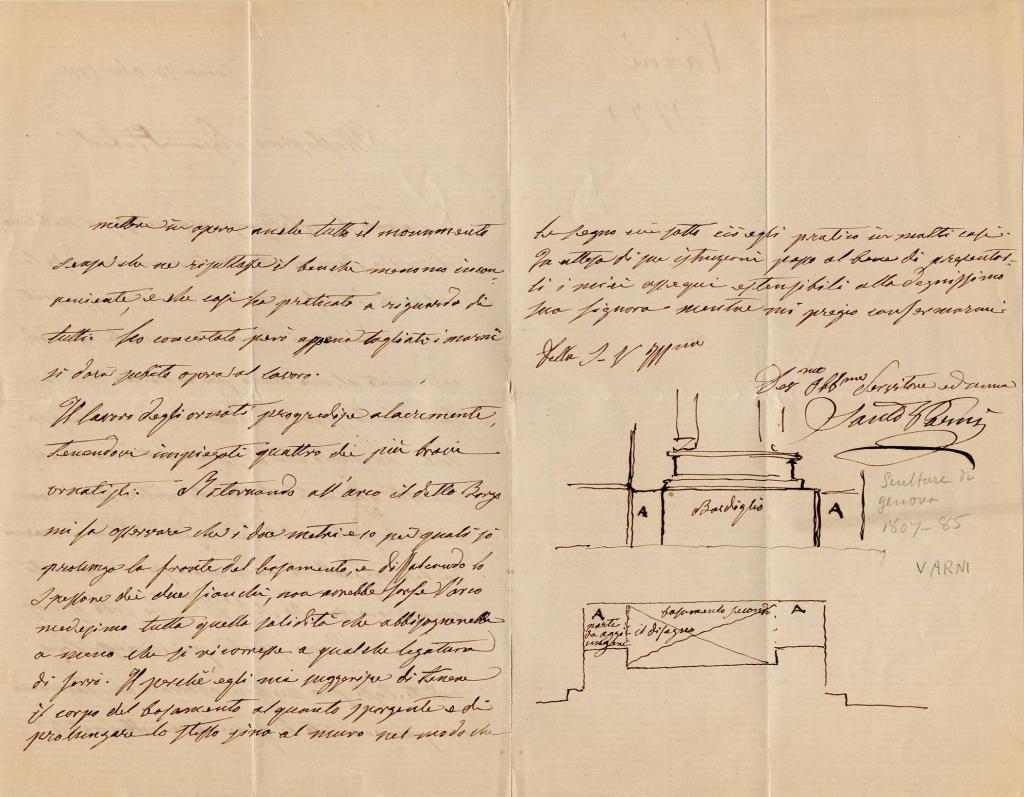 mettere in opera anche tutto il monumento
senza che ne risultasse il benchè menomo incon-
veniente, e che così ha praticato a riguardo di
tutti. Ho concertato però appena tagliati i marmi
si darà subito opera al lavoro.
Il lavoro degli ornati progredisce alacremente,
tenendovi impiegati quattro dei più bravi
ornatisti. Ritornando all'arco il detto Borgo
mi fa osservare che i due metri e 10 per quali si
prolunga la fronte del basamento, e difalcando lo
spessore dei due fianchi, non avrebbe forse l'arco
medesimo tutta quella solidità che abbisognerebbe
a meno che si ricorresse a qualche legatura
di ferro. Il perchè egli mi suggerisce di tenere
il corpo del basamento alquanto sporgente e di
prolungare lo stesso sino al muro nel modo che
Le segno qui sotto ciò egli praticò in molti casi.
In attesa di sue istruzioni passo al bene di presentar-
li i miei ossequi estensibili alla degnissima
sua signora mentre mi pregio confermarmi
Della S. V. Illma
Dev.mo Obb.mo Servitore ed amico
Santo Varni
Scultore di
genova
1807-85
VARNI
A
Bardiglio
A
A
basamento secondo
A
parte
da aggi
ungere
il disegno